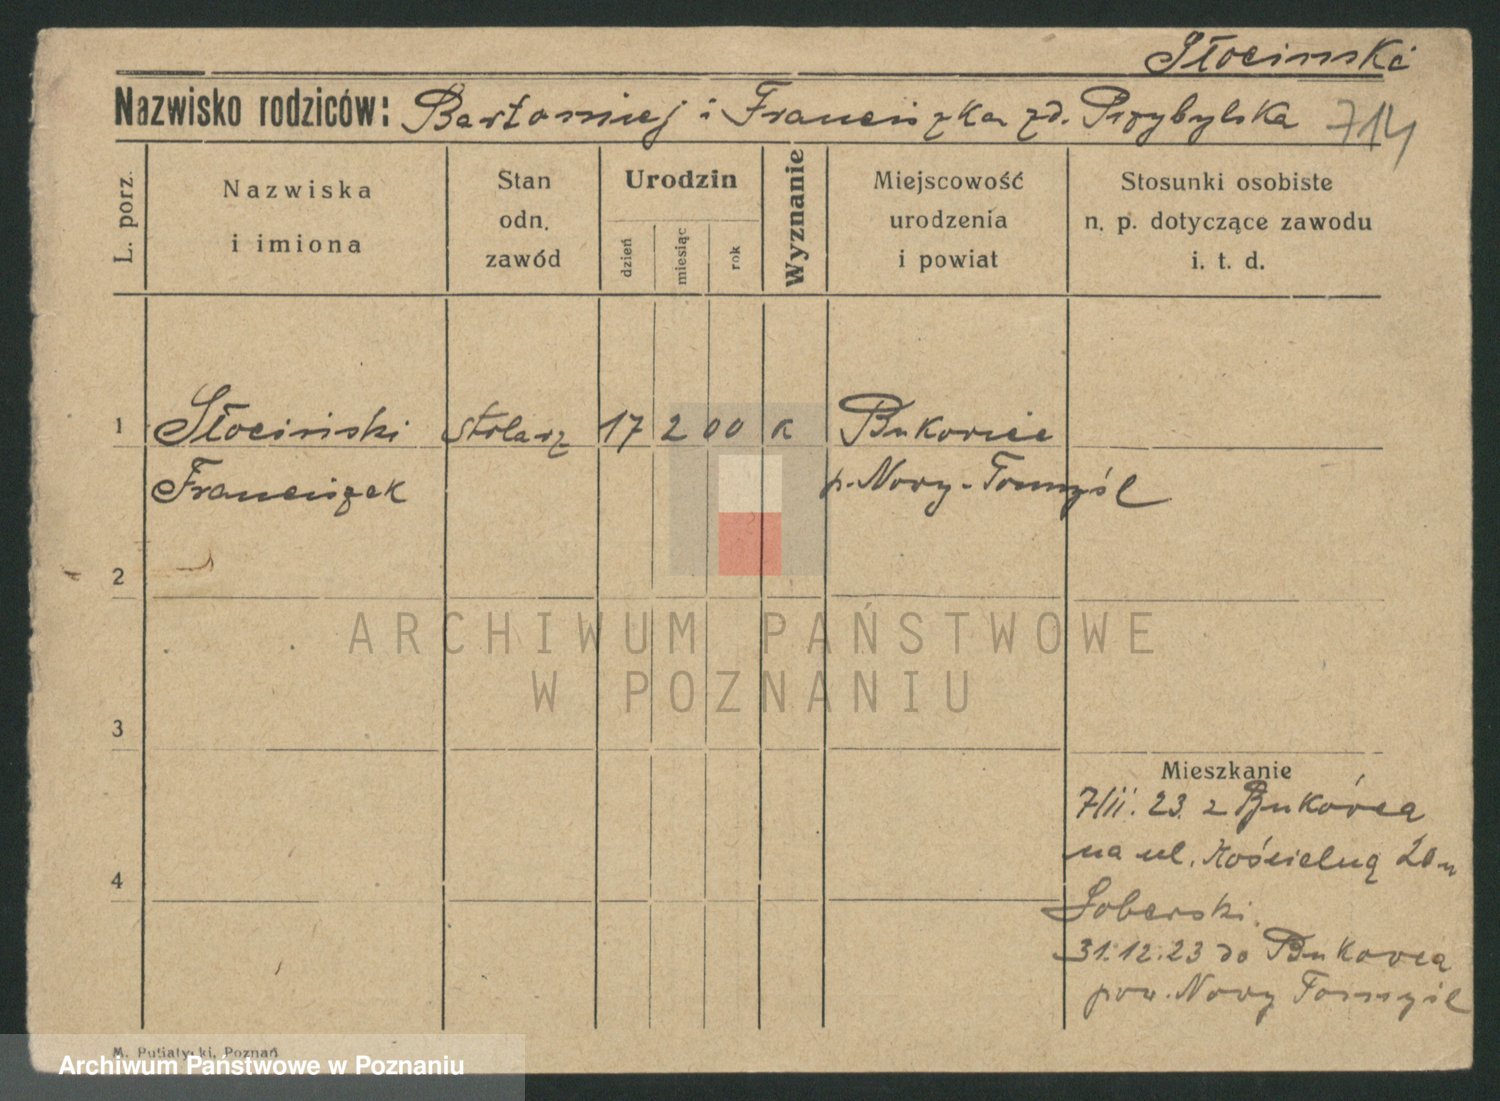 Słocinski
Nazwisko rodziców: Bartomiej i Franciszka zd. Przybylska 714
L. porz.
Nazwiska
i imiona
Stan
odn.
zawód
Urodzin
dzień
miesiąc
rok
Wyznanie
Miejscowość
urodzenia
i powiat
Stosunki osobiste
n. p. dotyczące zawodu
i. t. d.
1 Słociński stolarz 17 2 00 k Bukowiec
Franciszek p. Nowy-Tomyśl
2
ARCHIWUM PAŃSTWOWE
W POZNANIU
3
Mieszkanie
7/II. 23. z Bukówca
na ul. Kościelną 20 u
4
Soberski.
31.12.23 do Bukowca
pow. Nowy Tomyśl
M. Putiatycki, Poznań
Archiwum Państwowe w Poznaniu